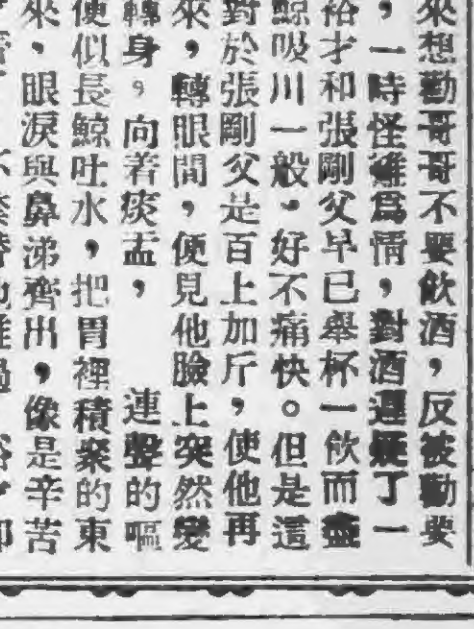 來想勸哥哥不要飲酒，反被勸要
，一時怪難爲情，對酒遲疑了一
裕才和張剛父早已舉杯一飲而盡
鯨吸川一般，好不痛快。但是這
對於張剛父是百上加斤，使他再
來，轉眼間，便見他臉上突然變
轉身，向着痰盂，連聲的嘔
便似長鯨吐水，把胃裡積聚的東
來，眼淚與鼻涕齊出，像是辛苦